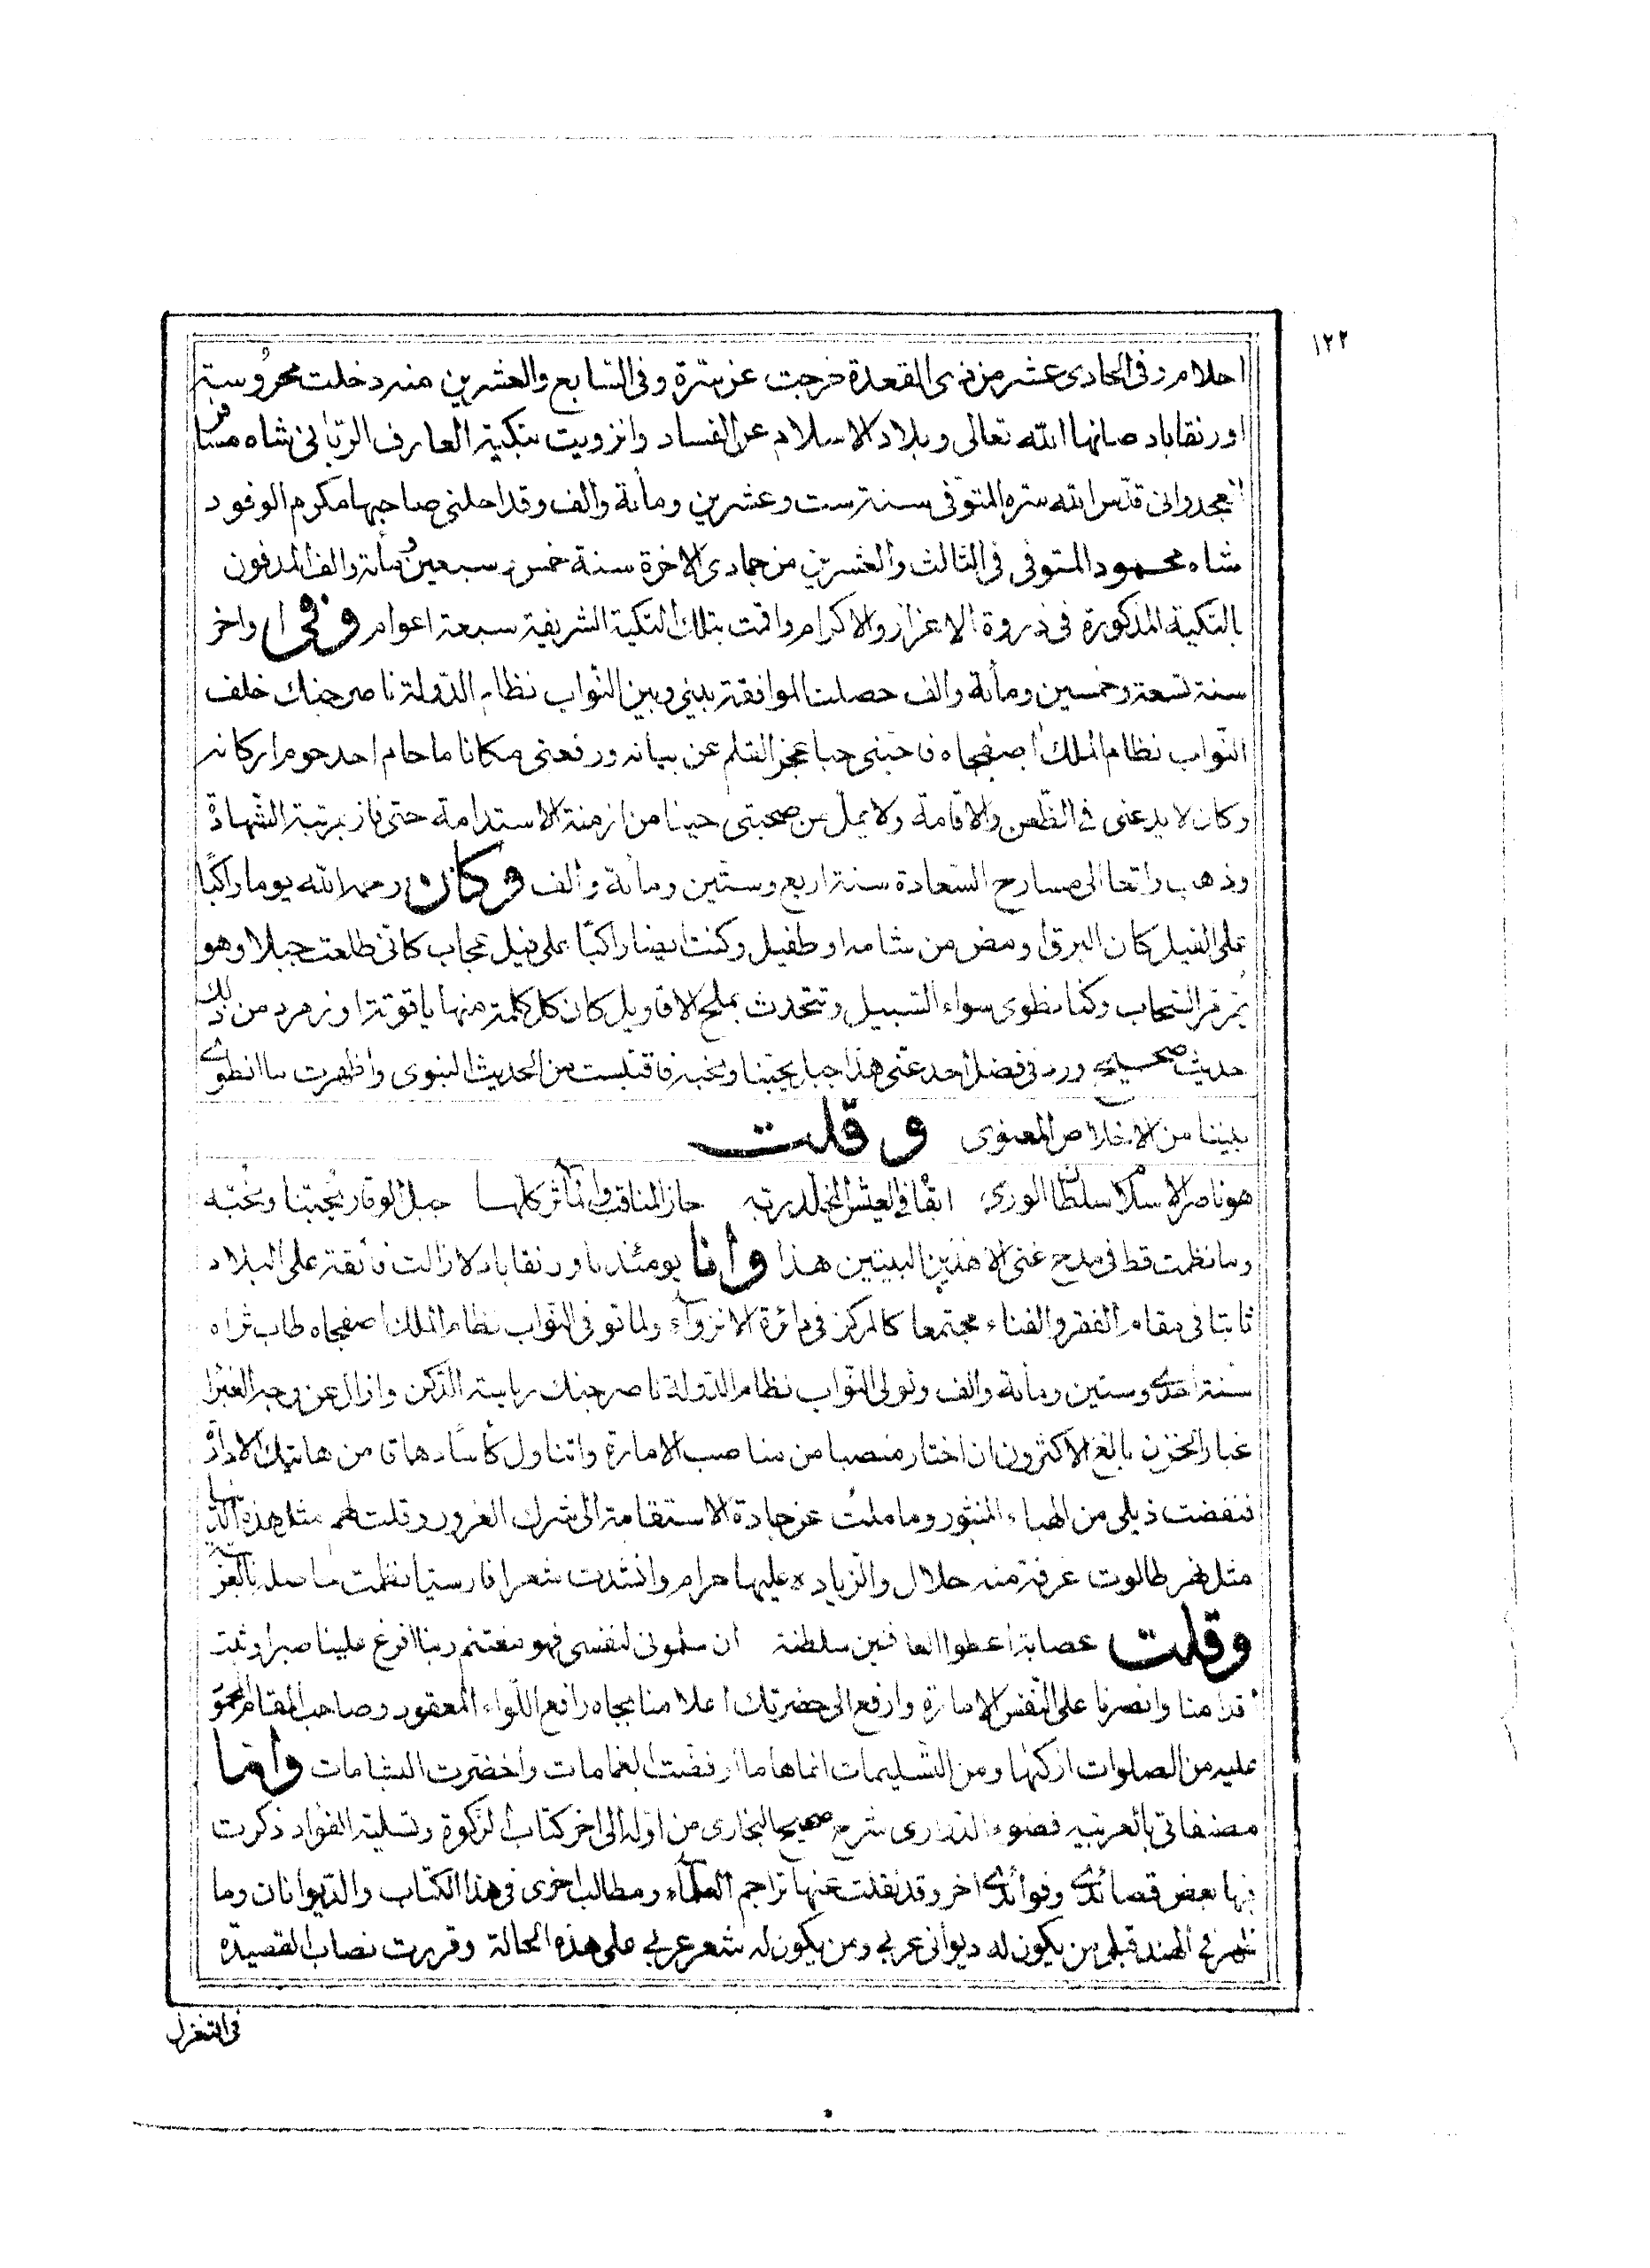 ١٢٢
احلام وفى الحادى عشر من ذى القعدة خرجت عن سترة وفى السابع والعشرين منه دخلت محروسة
اورنقاباد صانها الله تعالى وبلاد الاسلام عن الفساد وانزويت بتكية العارف الربانى شاه مسافر
الغجدوانى قدّس الله سره المتوفى سنة ست وعشرين ومأئة والف وقد احلنى صاحبها مكرم الوفود
شاه محمود المتوفى فى الثالث والعشرين من جمادى الاخرة سنة خمس وسبعين ومأئة والف المدفون
بالتكية المذكورة فى ذروة الاعزاز والاكرام واقمت بتلك التكية الشريفة سبعة اعوام وفى اواخر
سنة تسعة وخمسين ومأئة والف حصلت الموافقة بينى وبين النواب نظام الدولة ناصر جنك خلف
النواب نظام الملك اصفجاه فاحبنى حبا عجز القلم عن بيانه ورفعنى مكانا ما حام احد حوم اركانه
وكان لا يدعنى فى الظعن والاقامة ولا يمل من صحبتى حينا من ازمنة الاستدامة حتى فاز برتبة الشهادة
وذهب رائحا الى مسارح السعادة سنة اربع وستين ومأئة والف وكان رحمه الله يوما راكبًا
على الفيل كان البرق اومض من شامه او طفيل وكنت ايضا راكبًا على فيل عجاب كانى طلعت جبلا وهو
يمر مر السحاب وكنا نطوى سواء السبيل ونتحدث بملح الاقاويل كان كل كلمة منها ياقوتة او زمرد من ذلك
حديث صحيح ورد فى فضل احد عنى هذا جبل يحبنا ونحبه فاقتبست من الحديث النبوى واظهرت ما انطوى
بيننا من الاخلاص المعنوى وقلت
هو ناصر الاسلام سلطان الورى ابقاه فى العيش المخلد ربه حاز المناقب والمآثر كلها جبل الوقار يحبنا ونحبه
وما نظمت قط فى مدح غنى الا هذين البيتين هذا وانا يومئذ باورنقاباد لا زالت فائقة على البلاد
ثابتا فى مقام الفقر والفناء مجتمعا كالمركز فى دائرة الانزواء ولما توفى النواب نظام الملك اصفجاه طاب ثراه
سنة احدى وستين ومأئة والف وتولى النواب نظام الدولة ناصر جنك رياسة الدكن وازال عن وجه الغبرا
غبار الحزن بالغ الاكثرون ان اختار منصبا من مناصب الامارة واتناول كأسا دهاقا من هاتيك الادارة
فنفضت ذيلى من الهباء المنثور وما ملت عن جادة الاستقامة الى شرك الغرور وقلت لهم مثل هذه الدنيا
مثل نهر طالوت غرفة منه حلال والزياده عليها حرام وانشدت شعرا فارسيا نظمت ما صله بالعربية
وقلت عصابة اعطوا العافين سلطنة ان سلمونى لنفسى فهو مغتنم ربنا افرغ علينا صبرا وثبت
اقدامنا وانصرنا على النفس الامارة وارفع الى حضرتك اعلامنا بجاه رافع اللواء المعقود وصاحب المقام المحمود
عليه من الصلوات ازكها ومن التسليمات انماها ما ارفضت الغمامات واخضرت البشامات واما
مصنفاتى بالعربيه فضوء الدرارى شرح صحيح البخارى من اوله الى اخر كتاب الزكوة وتسلية الفؤاد ذكرت
فيها بعض قصائدى وفوائد اخر وقد نقلت عنها تراجم العلماء ومطالب اخرى فى هذا الكتاب والديوانان وما
ظهر فى الهند قبلى من يكون له ديوانى عربى ومن يكون له شعر عربى على هذه الحالة وقررت نصاب القصيدة
فى التغزل